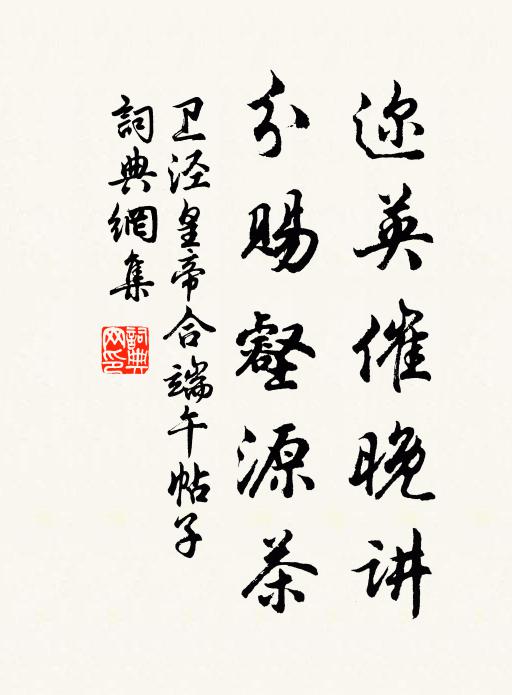 迩英催晚讲
分赐壑源茶
卫泾皇帝合端午帖子
詞典網集
詞典网印